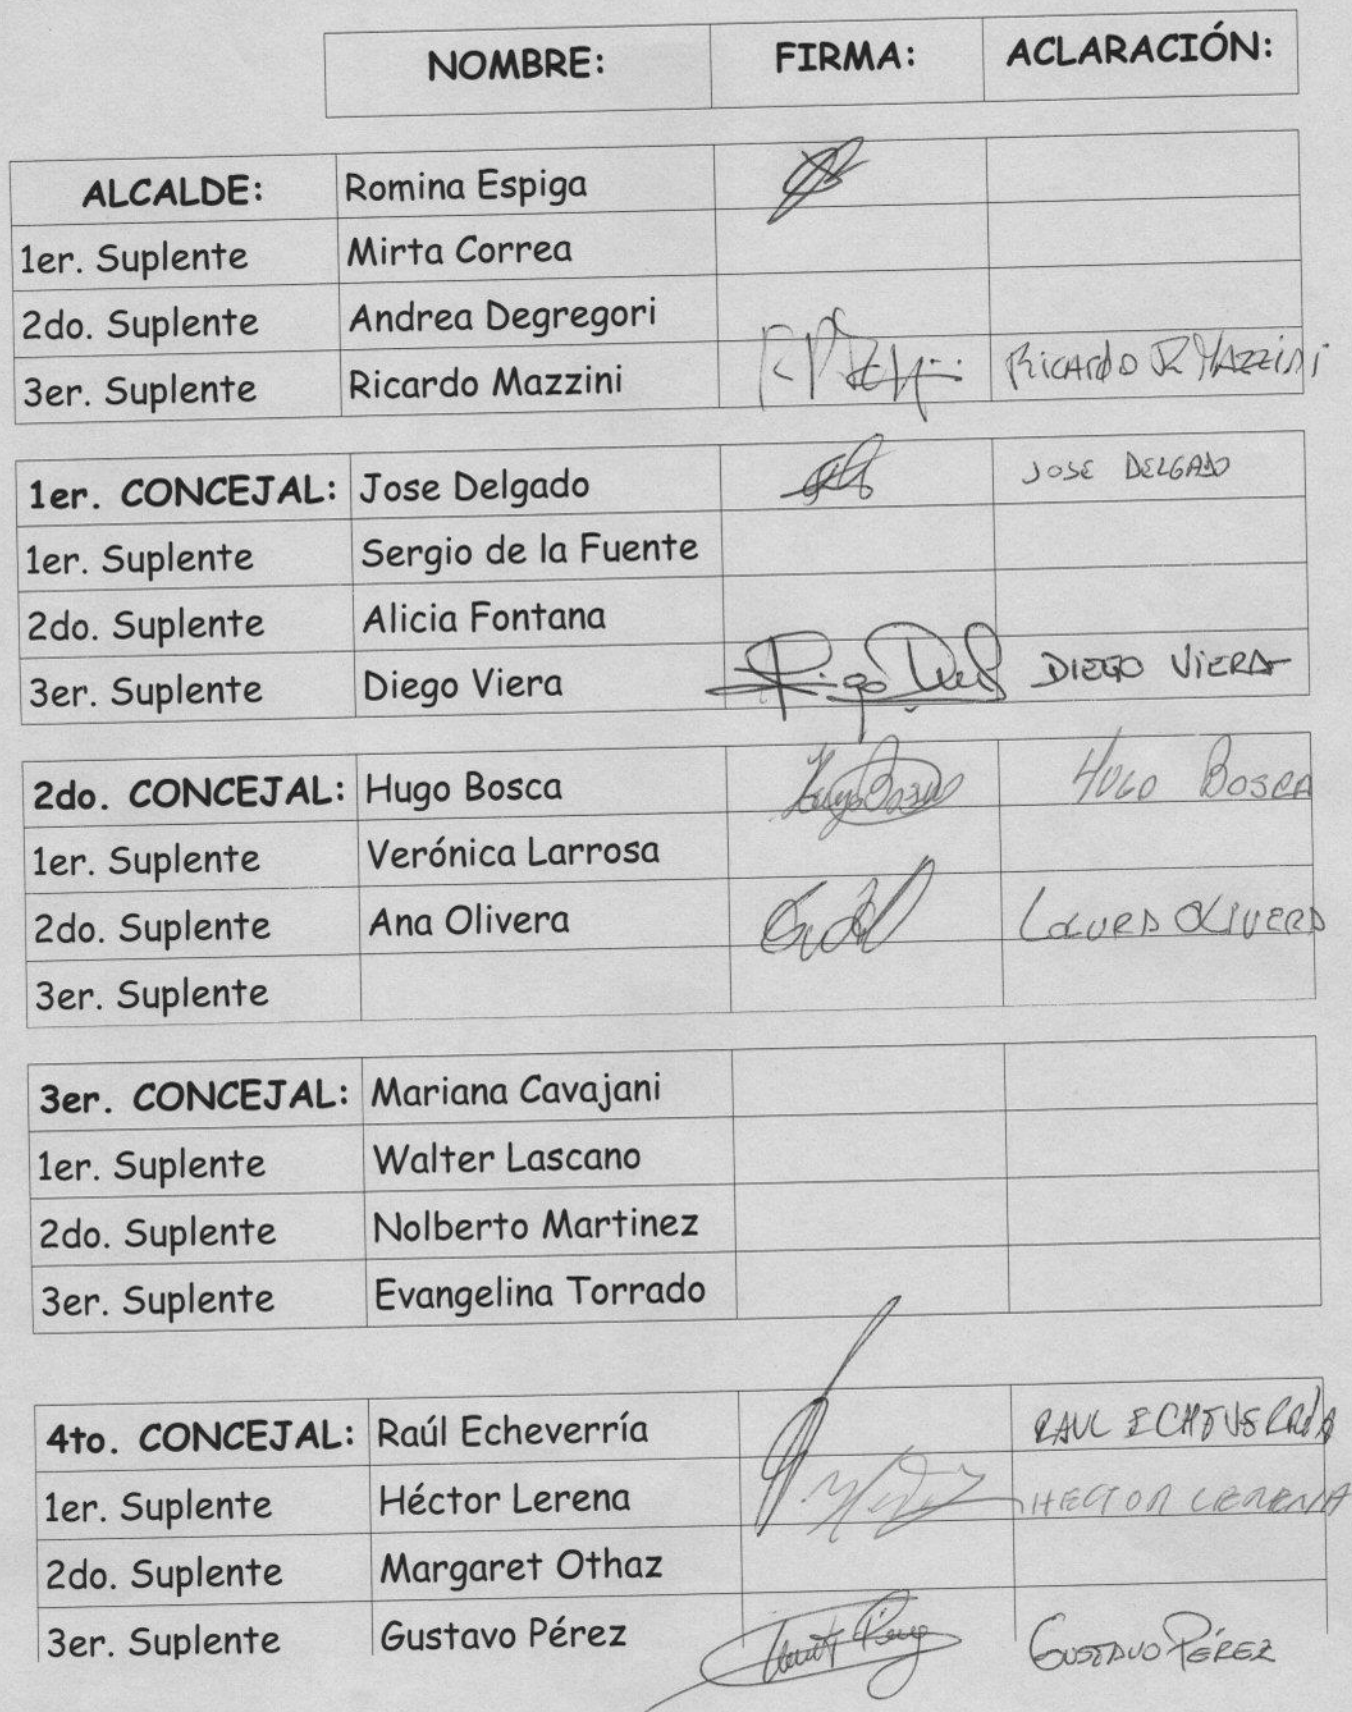 NOMBRE: FIRMA: ACLARACIÓN:
ALCALDE: Romina Espiga
1er. Suplente Mirta Correa
2do. Suplente Andrea Degregori
3er. Suplente Ricardo Mazzini RICARDO R MAZZINI
1er. CONCEJAL: Jose Delgado JOSE DELGADO
1er. Suplente Sergio de la Fuente
2do. Suplente Alicia Fontana
3er. Suplente Diego Viera DIEGO VIERA
2do. CONCEJAL: Hugo Bosca Hugo Bosca HUGO BOSCA
1er. Suplente Verónica Larrosa
2do. Suplente Ana Olivera OLIVERA
3er. Suplente
3er. CONCEJAL: Mariana Cavajani
1er. Suplente Walter Lascano
2do. Suplente Nolberto Martinez
3er. Suplente Evangelina Torrado
4to. CONCEJAL: Raúl Echeverría RAUL ECHEVERRÍA
1er. Suplente Héctor Lerena HECTOR LERENA
2do. Suplente Margaret Othaz
3er. Suplente Gustavo Pérez GUSTAVO PÉREZ